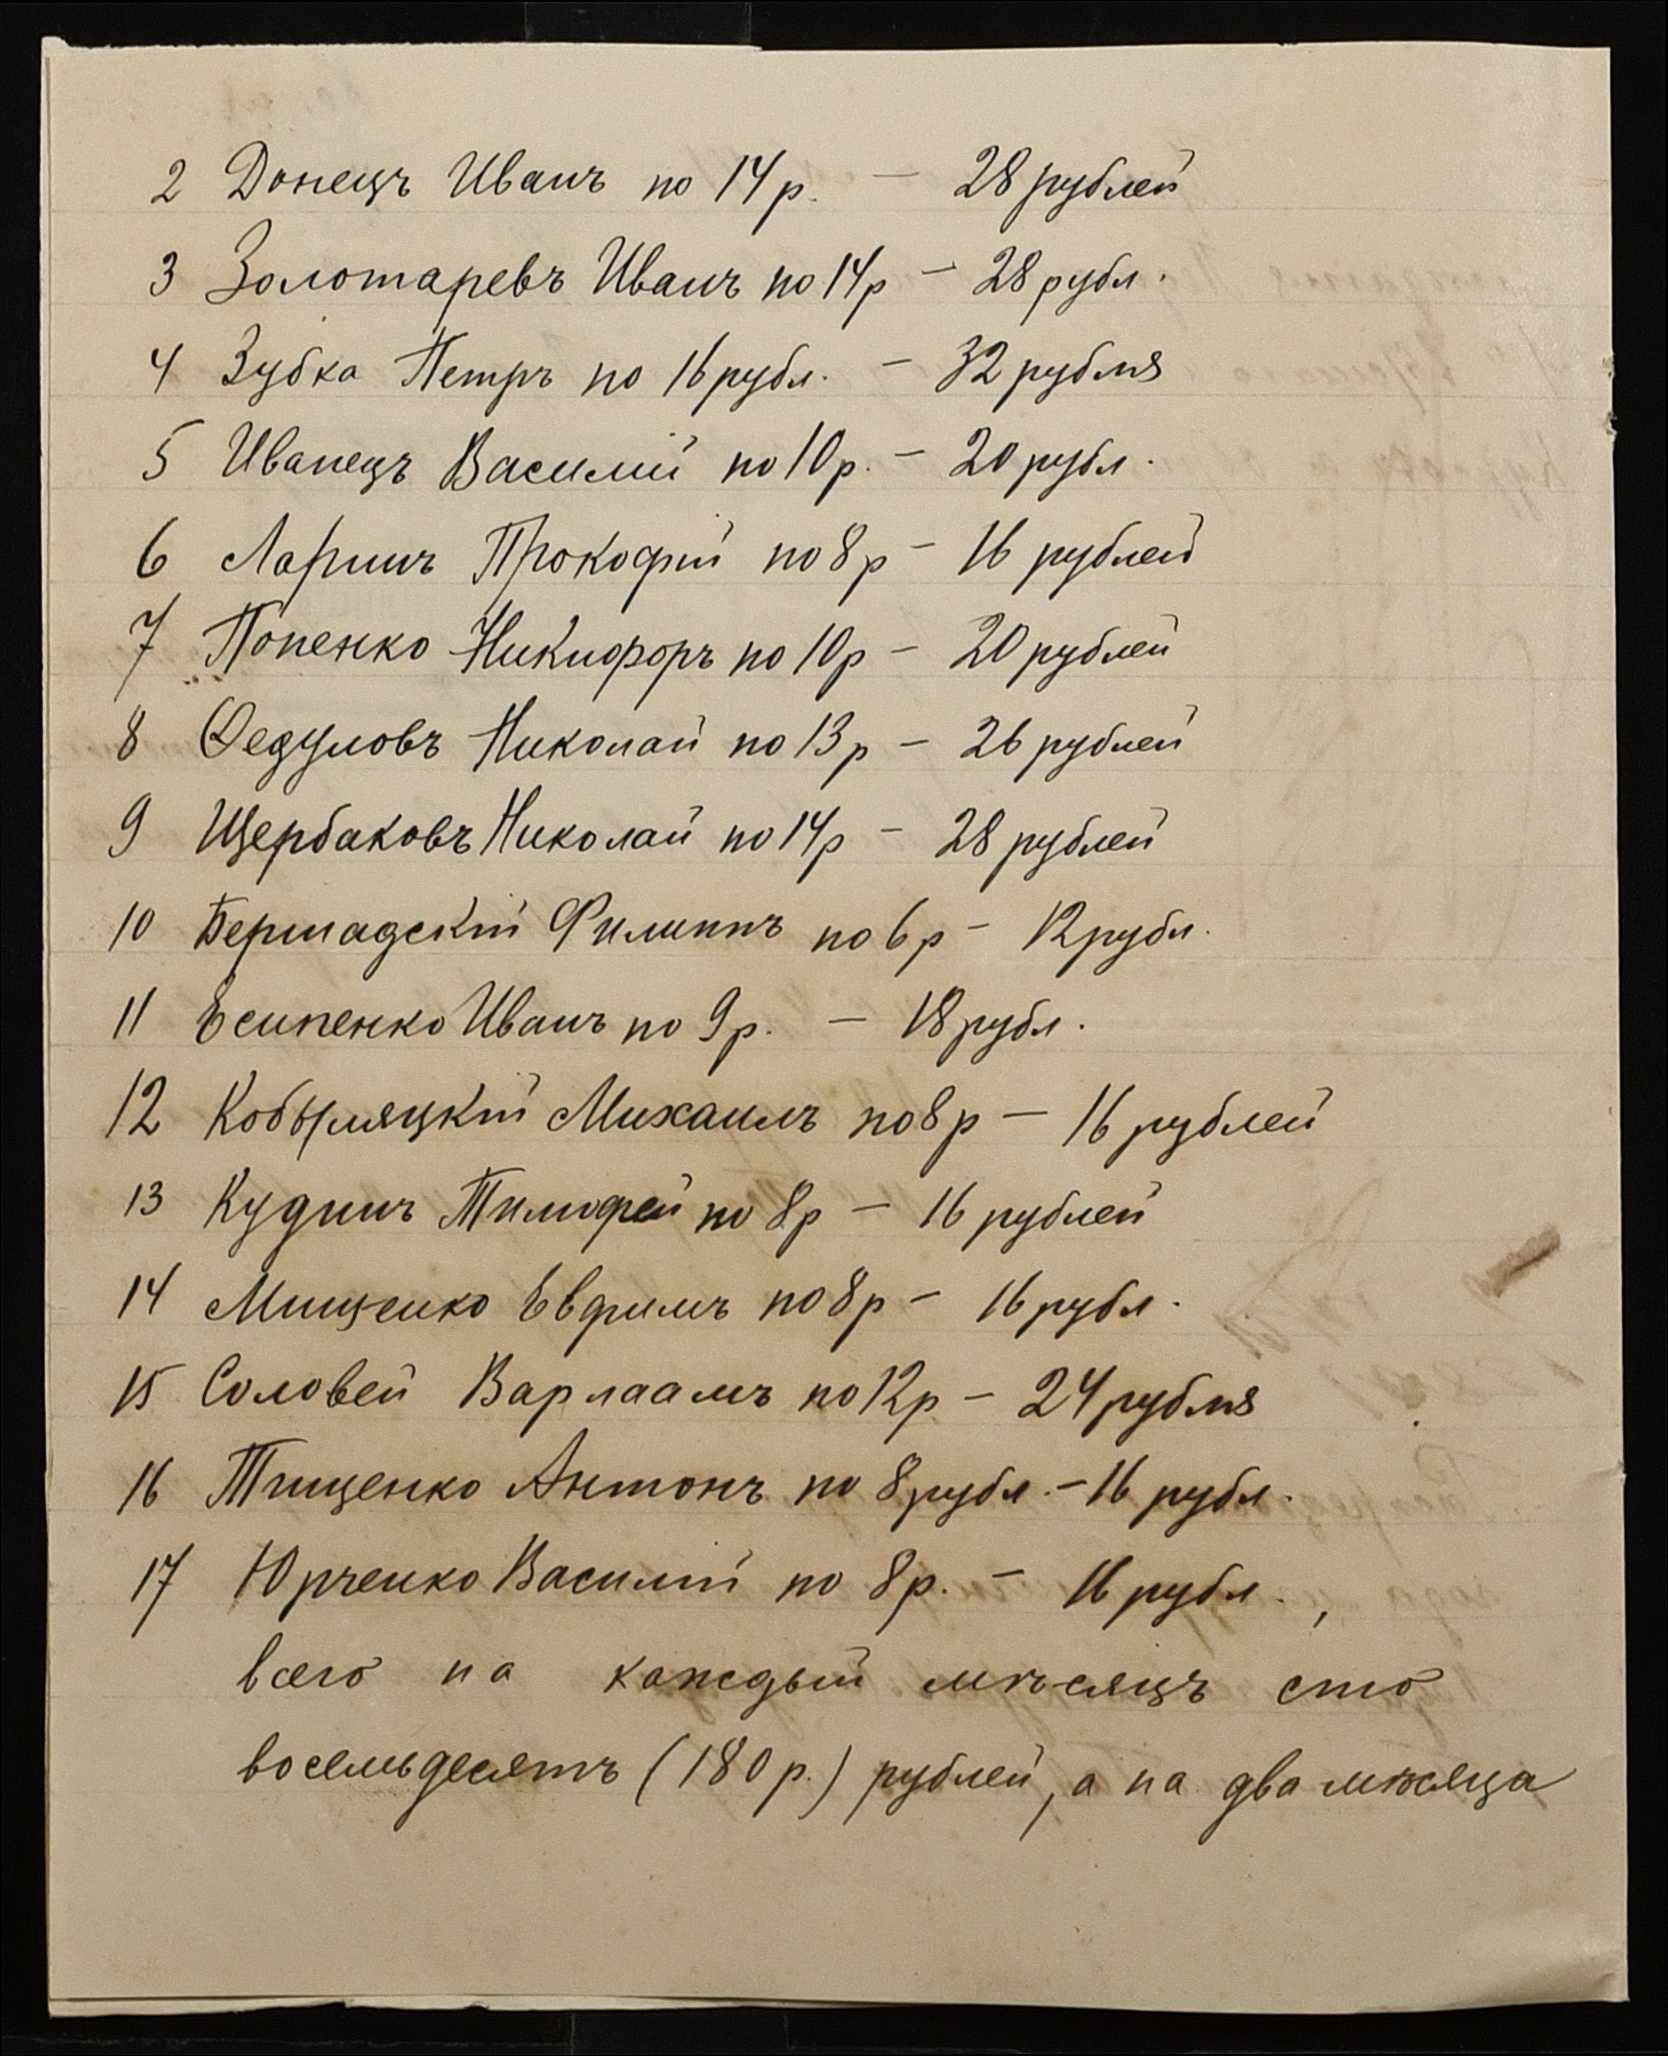 2 Донецъ Иванъ по 14 р. — 28 рублей
3 Золотаревъ Иванъ по 14 р — 28 рубл.
4 Зубка Петръ по 16 рубл. — 32 рубля
5 Иванецъ Василій по 10 р. — 20 рубл.
6 Ларинъ Прокофій по 8 р — 16 рублей
7 Попенко Никифоръ по 10 р — 20 рублей
8 Федуловъ Николай по 13 р — 26 рублей
9 Щербаковъ Николай по 14 р — 28 рублей
10 Бершадскій Филиппъ по 6 р — 12 рубл.
11 Есипенко Иванъ по 9 р. — 18 рубл.
12 Кобыляцкій Михаилъ по 8 р — 16 рублей
13 Кудинъ Тимофей по 8 р — 16 рублей
14 Мищенко Евфимъ по 8 р — 16 рубл.
15 Соловей Варлаамъ по 12 р — 24 рубля
16 Тищенко Антонъ по 8 рубл. — 16 рубл.
17 Юрченко Василій по 8 р. — 16 рубл.,
всего на каждый мѣсяцъ сто
восемьдесятъ (180 р.) рублей, а на два мѣсяца